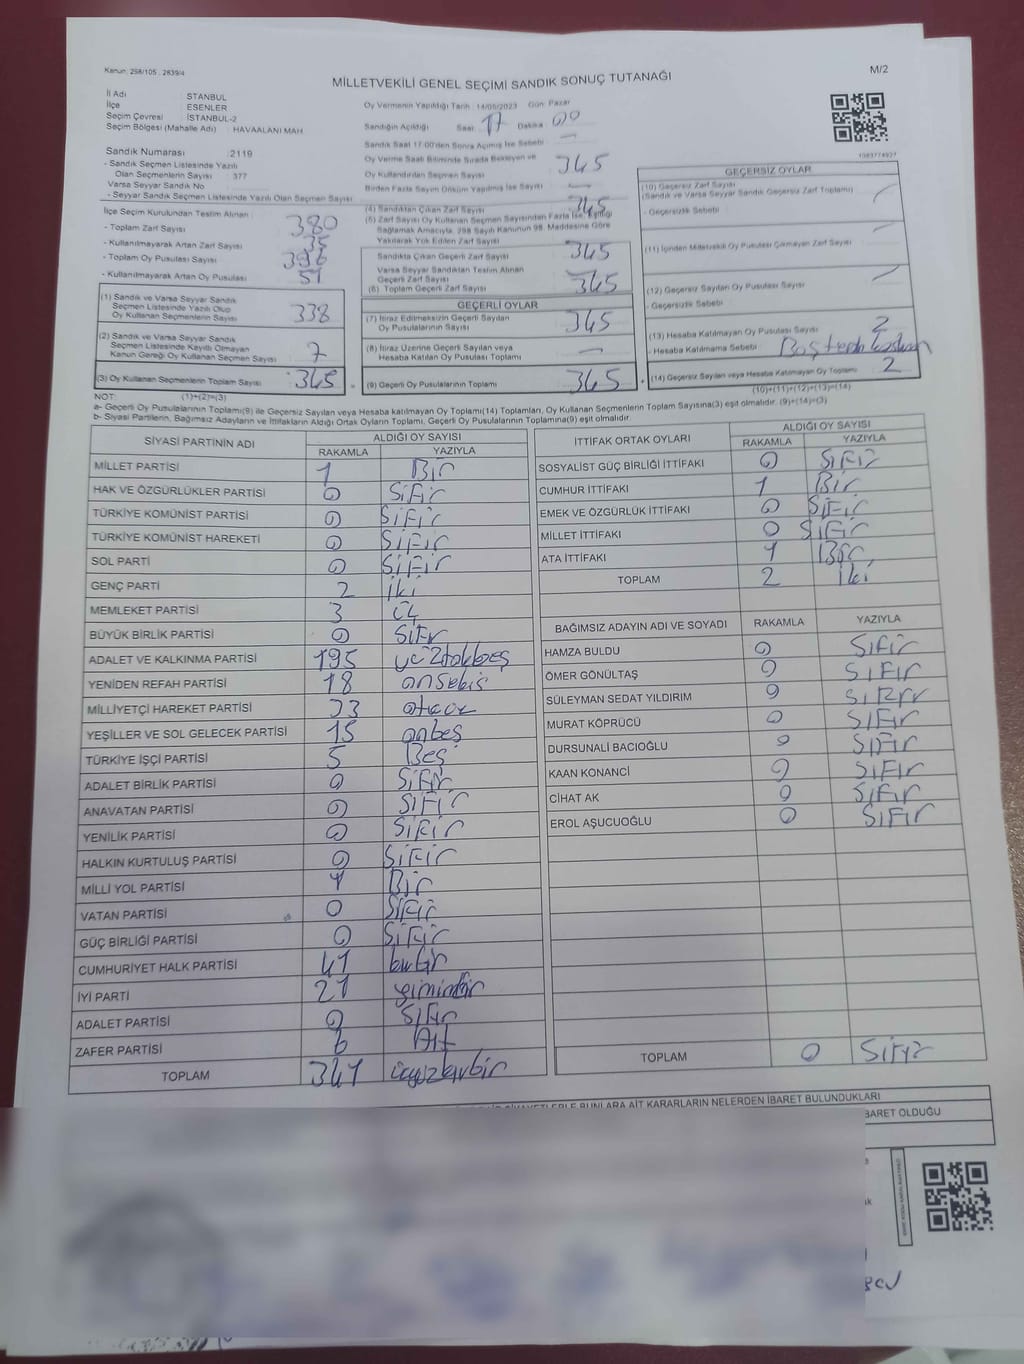 Kanun: 298/105 , 2839/4
M/2
MİLLETVEKİLİ GENEL SEÇİMİ SANDIK SONUÇ TUTANAĞI
İl Adı STANBUL
İlçe ESENLER
Seçim Çevresi İSTANBUL-2
Seçim Bölgesi (Mahalle Adı) HAVAALANI MAH.
Oy Vermenin Yapıldığı Tarih : 14/05/2023 Gün: Pazar
Sandığın Açıldığı Saat 17 Dakika 00
Sandık Saat 17:00'den Sonra Açılmış İse Sebebi —
Oy Verme Saati Bitiminde Sırada Bekleyen ve
Oy Kullandırılan Seçmen Sayısı 345
Birden Fazla Sayım Döküm Yapılmış İse Sayısı —
1083774927
Sandık Numarası : 2119
- Sandık Seçmen Listesinde Yazılı
Olan Seçmenlerin Sayısı : 377
Varsa Seyyar Sandık No
- Seyyar Sandık Seçmen Listesinde Yazılı Olan Seçmen Sayısı
İlçe Seçim Kurulundan Teslim Alınan :
- Toplam Zarf Sayısı 380
- Kullanılmayarak Artan Zarf Sayısı 35
- Toplam Oy Pusulası Sayısı 396
- Kullanılmayarak Artan Oy Pusulası 51
(1) Sandık ve Varsa Seyyar Sandık
Seçmen Listesinde Yazılı Olup
Oy Kullanan Seçmenlerin Sayısı 338
(2) Sandık ve Varsa Seyyar Sandık
Seçmen Listesinde Kayıtlı Olmayan
Kanun Gereği Oy Kullanan Seçmen Sayısı 7
(3) Oy Kullanan Seçmenlerin Toplam Sayısı 345
(4) Sandıktan Çıkan Zarf Sayısı 345
(5) Zarf Sayısı Oy Kullanan Seçmen Sayısından Fazla İse, Eşitliği
Sağlamak Amacıyla, 298 Sayılı Kanunun 98. Maddesine Göre
Yakılarak Yok Edilen Zarf Sayısı
Sandıkta Çıkan Geçerli Zarf Sayısı 345
Varsa Seyyar Sandıktan Teslim Alınan
Geçerli Zarf Sayısı
(6) Toplam Geçerli Zarf Sayısı 345
GEÇERLİ OYLAR
(7) İtiraz Edilmeksizin Geçerli Sayılan
Oy Pusulalarının Sayısı 345
(8) İtiraz Üzerine Geçerli Sayılan veya
Hesaba Katılan Oy Pusulası Toplamı —
(9) Geçerli Oy Pusulalarının Toplamı 345
GEÇERSİZ OYLAR
(10) Geçersiz Zarf Sayısı
(Sandık ve Varsa Seyyar Sandık Geçersiz Zarf Toplamı)
- Geçersizlik Sebebi
(11) İçinden Milletvekili Oy Pusulası Çıkmayan Zarf Sayısı
(12) Geçersiz Sayılan Oy Pusulası Sayısı
- Geçersizlik Sebebi
(13) Hesaba Katılmayan Oy Pusulası Sayısı 2
- Hesaba Katılmama Sebebi
(14) Geçersiz Sayılan veya Hesaba Katılmayan Oy Toplamı 2
NOT: (1)+(2)=(3)
(10)+(11)+(12)+(13)=(14)
a- Geçerli Oy Pusulalarının Toplamı(9) ile Geçersiz Sayılan veya Hesaba katılmayan Oy Toplamı(14) Toplamları, Oy Kullanan Seçmenlerin Toplam Sayısına(3) eşit olmalıdır. (9)+(14)=(3)
b- Siyasi Partilerin, Bağımsız Adayların ve İttifakların Aldığı Ortak Oyların Toplamı, Geçerli Oy Pusulalarının Toplamına(9) eşit olmalıdır.
SİYASİ PARTİNİN ADI ALDIĞI OY SAYISI
RAKAMLA YAZIYLA
MİLLET PARTİSİ 1 Bir
HAK VE ÖZGÜRLÜKLER PARTİSİ 0 Sıfır
TÜRKİYE KOMÜNİST PARTİSİ 0 Sıfır
TÜRKİYE KOMÜNİST HAREKETİ 0 Sıfır
SOL PARTİ 0 Sıfır
GENÇ PARTİ 2 iki
MEMLEKET PARTİSİ 3 üç
BÜYÜK BİRLİK PARTİSİ 0 Sıfır
ADALET VE KALKINMA PARTİSİ 195
YENİDEN REFAH PARTİSİ 18 onsekiz
MİLLİYETÇİ HAREKET PARTİSİ 33 otuzüç
YEŞİLLER VE SOL GELECEK PARTİSİ 15 onbeş
TÜRKİYE İŞÇİ PARTİSİ 5 Beş
ADALET BİRLİK PARTİSİ 0 Sıfır
ANAVATAN PARTİSİ 0 Sıfır
YENİLİK PARTİSİ 0 Sıfır
HALKIN KURTULUŞ PARTİSİ 0 Sıfır
MİLLİ YOL PARTİSİ 1 Bir
VATAN PARTİSİ 0 Sıfır
GÜÇ BİRLİĞİ PARTİSİ 0 Sıfır
CUMHURİYET HALK PARTİSİ 41
İYİ PARTİ 21 yirmibir
ADALET PARTİSİ 0 Sıfır
ZAFER PARTİSİ 6 Altı
TOPLAM 341
İTTİFAK ORTAK OYLARI ALDIĞI OY SAYISI
RAKAMLA YAZIYLA
SOSYALİST GÜÇ BİRLİĞİ İTTİFAKI 0 Sıfır
CUMHUR İTTİFAKI 1 Bir
EMEK VE ÖZGÜRLÜK İTTİFAKI 0 Sıfır
MİLLET İTTİFAKI 0 Sıfır
ATA İTTİFAKI 1 Bir
TOPLAM 2 iki
BAĞIMSIZ ADAYIN ADI VE SOYADI RAKAMLA YAZIYLA
HAMZA BULDU 0 Sıfır
ÖMER GÖNÜLTAŞ 0 Sıfır
SÜLEYMAN SEDAT YILDIRIM 0 Sıfır
MURAT KÖPRÜCÜ 0 Sıfır
DURSUNALİ BACIOĞLU 0 Sıfır
KAAN KONANCİ 0 Sıfır
CİHAT AK 0 Sıfır
EROL AŞUCUOĞLU 0 Sıfır
TOPLAM 0 Sıfır
BUNLARA AİT KARARLARIN NELERDEN İBARET BULUNDUKLARI
BARET OLDUĞU